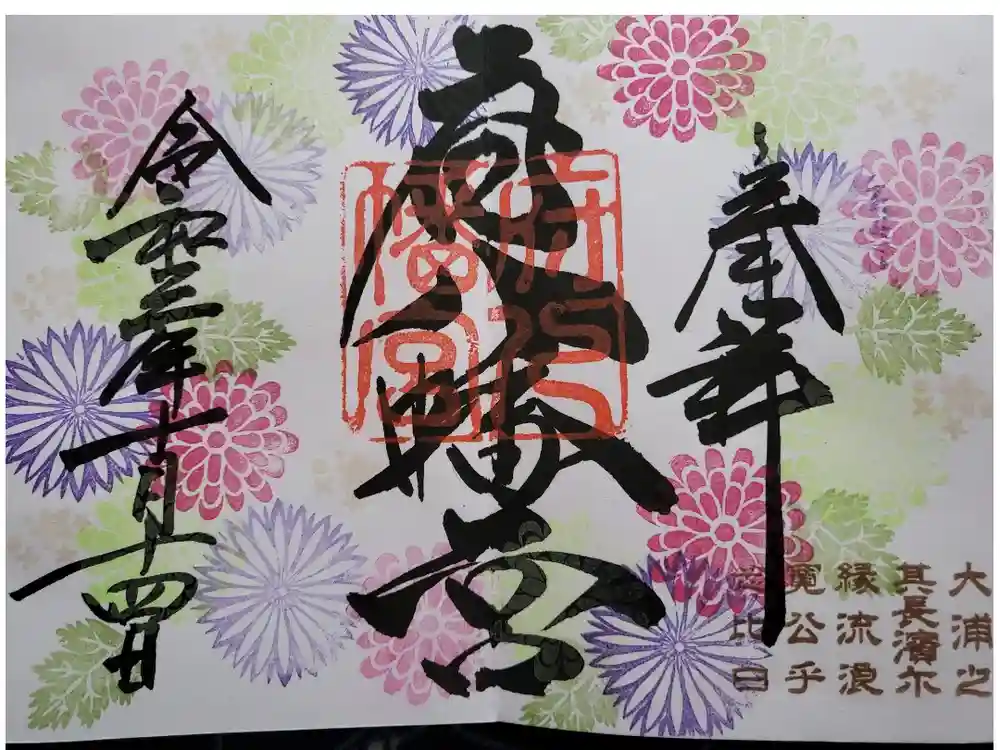 奉拝
府八幡宮
令和三年十月十四日
府八
幡宮
大浦之
其長濱尓
縁流浪
寛公乎
念比日